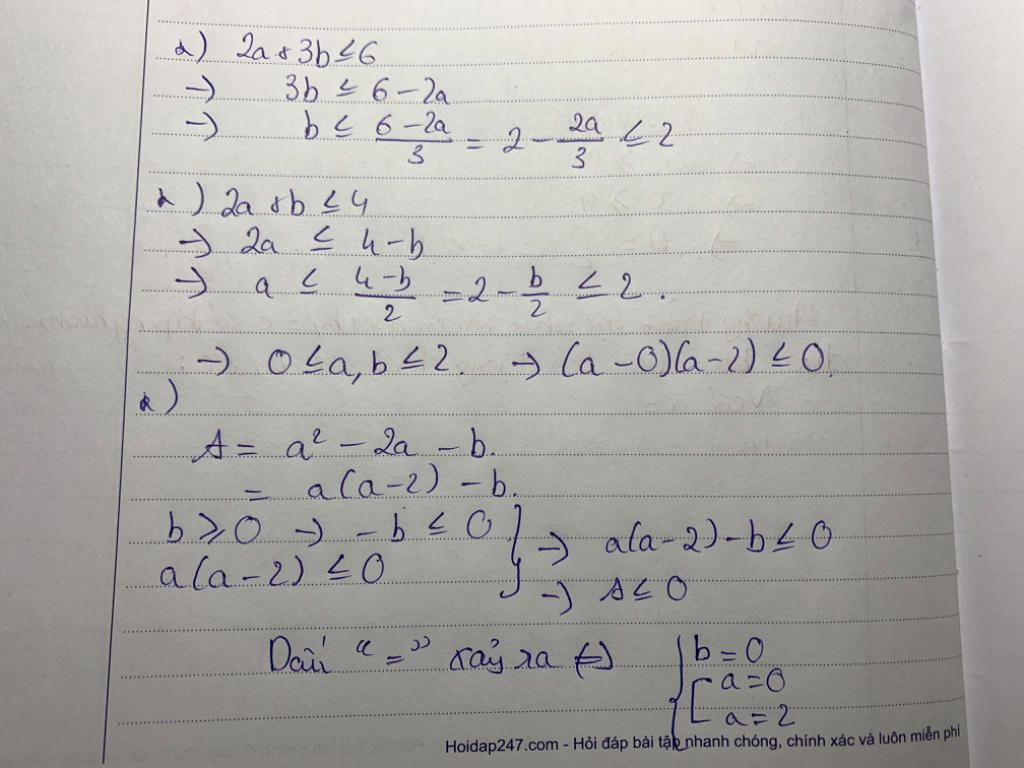 α) 2a + 3b ≤ 6
→) 3b ≤ 6 - 2a
→) b ≤ (6 - 2a)/3 = 2 - 2a/3 ≤ 2
α) 2a + b ≤ 4
→) 2a ≤ 4 - b
→) a ≤ (4 - b)/2 = 2 - b/2 ≤ 2.
→) 0 ≤ a, b ≤ 2. →) (a - 0)(a - 2) ≤ 0.
α)
A = a² - 2a - b.
= a(a - 2) - b.
b ≥ 0 →) - b ≤ 0 } →) a(a - 2) - b ≤ 0
a(a - 2) ≤ 0 } →) A ≤ 0
Dấu "=" xảy ra (=) { b = 0
[ a = 0
a = 2
Hoidap247.com - Hỏi đáp bài tập nhanh chóng, chính xác và luôn miễn phí